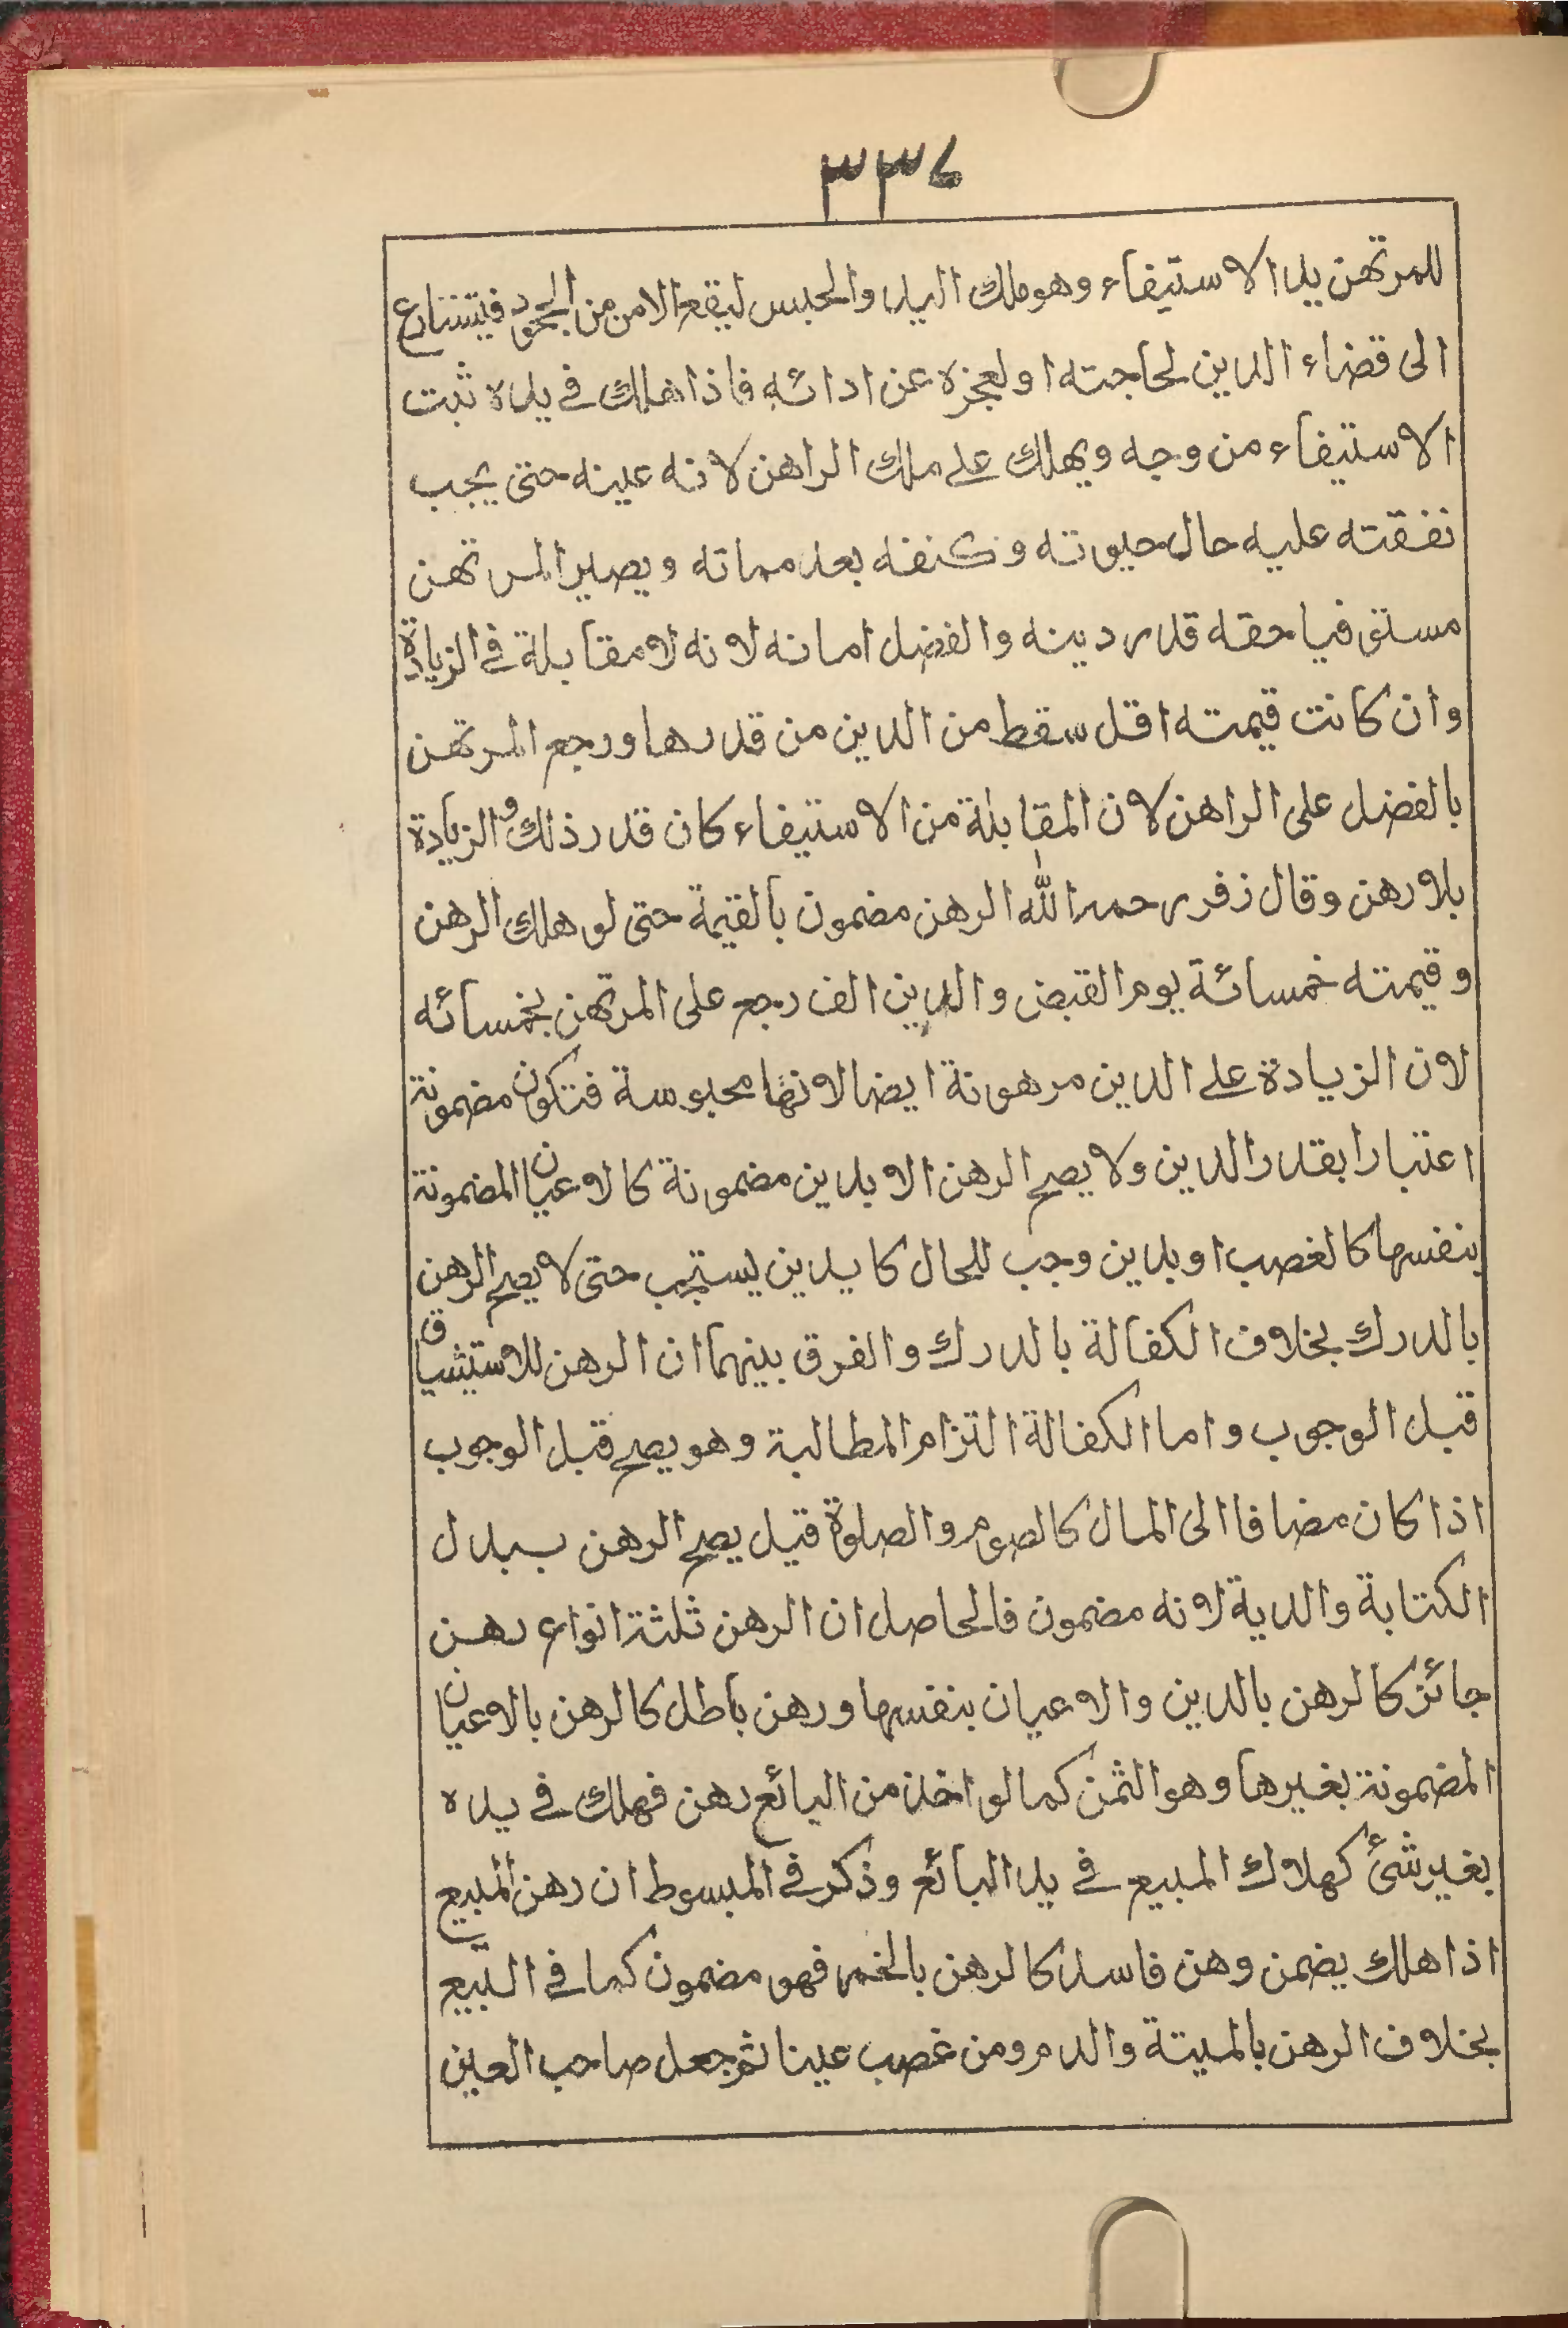 ٣٣٤
للمرتهن يد الاستيفاء وهو ملك اليد والحبس ليقع الامن من الجحود فيتسارع
الى قضاء الدين لحاجته او لعجزه عن ادائه فاذا هلك في يده ثبت
الاستيفاء من وجه ويهلك على ملك الراهن لانه عينه حتى يجب
نفقته عليه حال حيوته وكنفه بعد مماته ويصير المرتهن
مستوفيا حقه قدر دينه والفضل امانه لانه لا مقابلة في الزيادة
وان كانت قيمته اقل سقط من الدين من قدرها ورجع المرتهن
بالفضل على الراهن لان المقابلة من الاستيفاء كان قدر ذلك والزيادة
بلا رهن وقال زفر رحمه الله الرهن مضمون بالقيمة حتى لو هلك الرهن
وقيمته خمسائة يوم القبض والدين الف رجع على المرتهن بخمسائه
لان الزيادة على الدين مرهونة ايضا لانها محبوسة فتكون مضمونة
اعتبارا بقدر الدين ولا يصح الرهن الا بدين مضمونة كالاعيان المضمونة
بنفسها كالغصب او بدين وجب للحال كا يدين ليستجب حتى لا يصح الرهن
بالدرك بخلاف الكفالة بالدرك والفرق بينهما ان الرهن للاستيثياق
قبل الوجوب واما الكفالة التزام المطالبة وهو يصح قبل الوجوب
اذا كان مضافا الى المال كالصوم والصلوة قيل يصح الرهن ببدل
الكتابة والدية لانه مضمون فالحاصل ان الرهن ثلثة انواع رهن
جائز كالرهن بالدين والاعيان بنفسها ورهن باطل كالرهن بالاعيان
المضمونة بغيرها وهو الثمن كما لو اخذ من البائع رهن فهلك في يده
بغير شئ كهلاك المبيع في يد البائع وذكر في المبسوط ان رهن المبيع
اذا هلك يضمن وهن فاسد كالرهن بالخمر فهو مضمون كما في البيع
بخلاف الرهن بالميتة والدم ومن غصب عينا ثم جعل صاحب العين